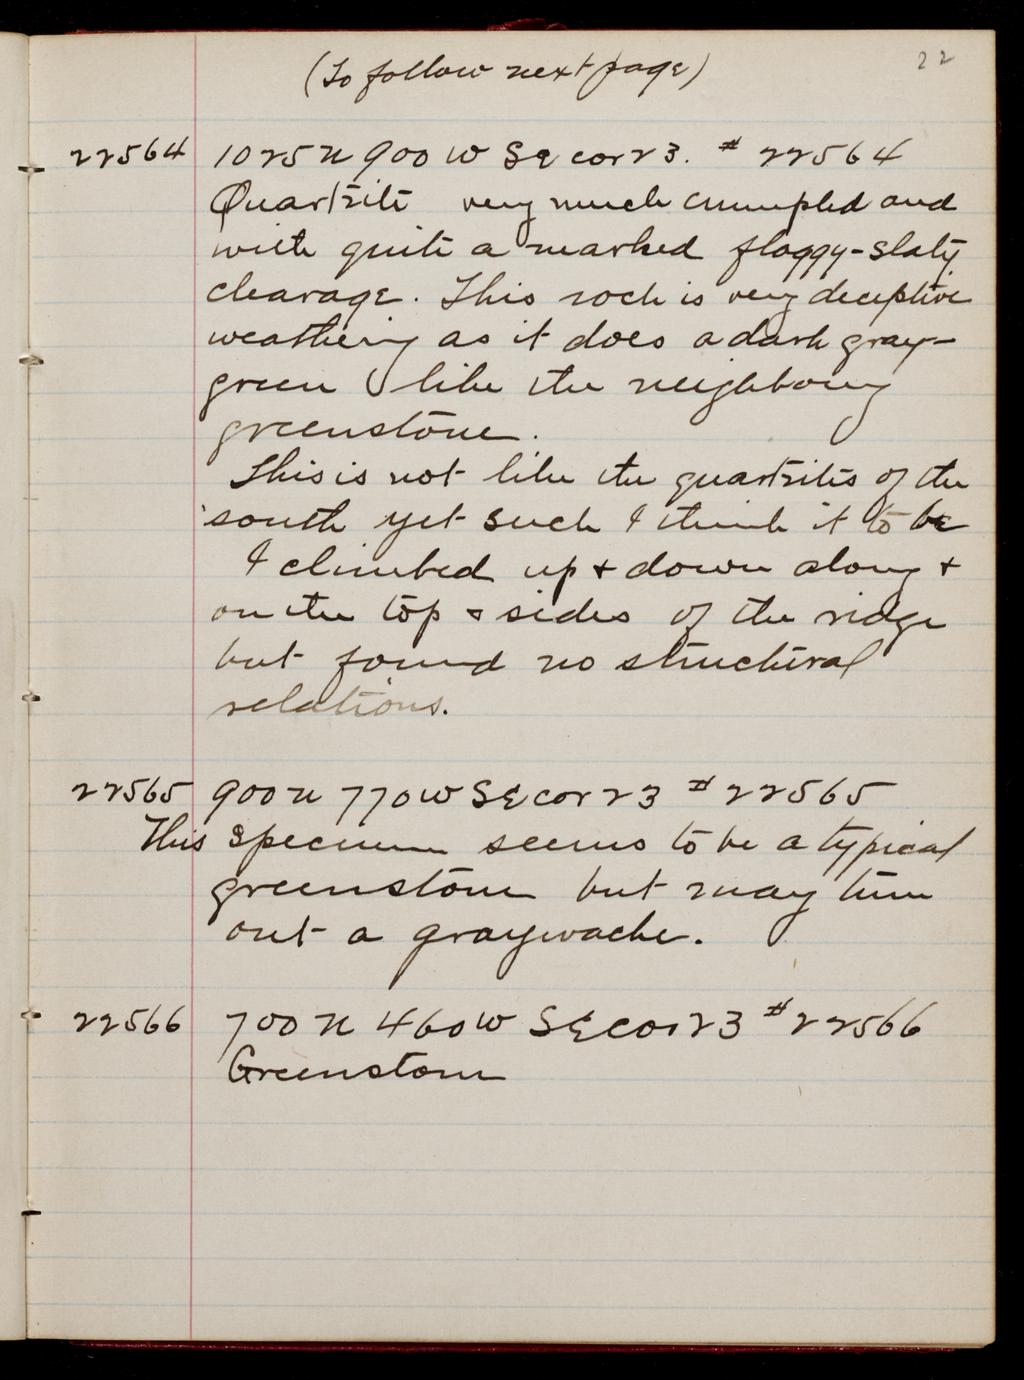 (To follow next page)
22
22564 1025 N 900 W SE cor 23. # 22564
Quartzite very much crumpled and
with quite a marked flaggy-slaty
cleavage. This rock is very deceptive
weathering as it does a dark gray-
green like the neighboring
greenstone.
This is not like the quartzites of the
south yet such I think it to be
I climbed up + down along +
on the top & sides of the ridge
but found no structural
relations.
22565 900 N 770 W SE cor 23 # 22565
This specimen seems to be a typical
greenstone but may turn
out a graywacke.
22566 700 N 460 W SE cor 23 # 22566
Greenstone